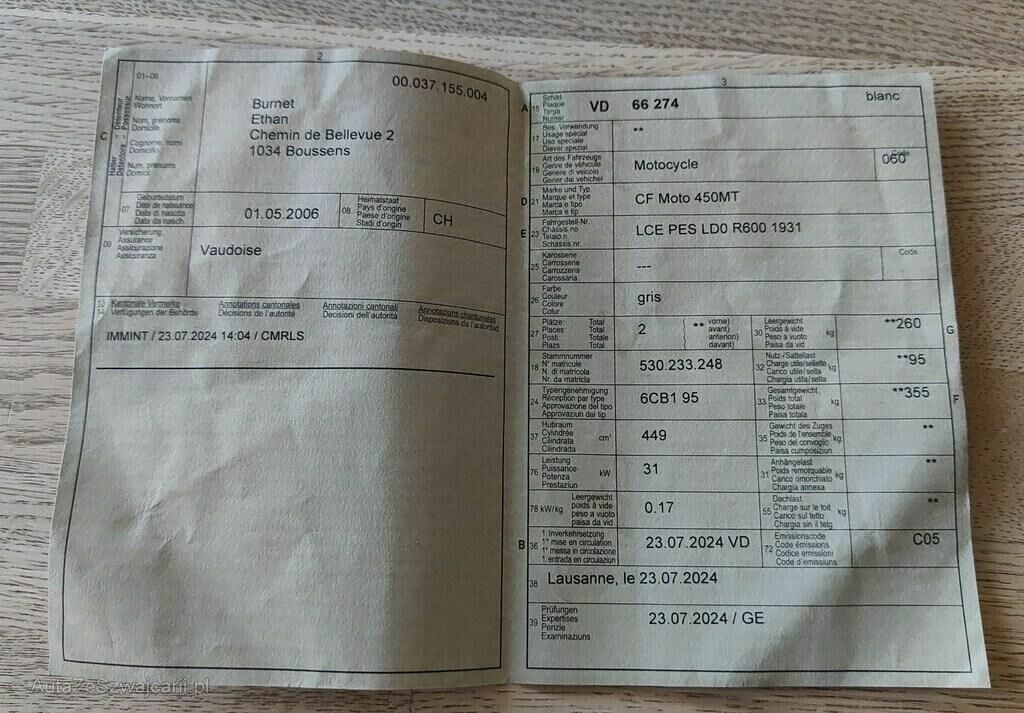 2
00.037.155.004
01-06
Name, Vornamen
Wohnort
Nom, prénoms
Domicile
Cognome, nomi
Domicilio
Num, prenums
Domicil
C
Halter
Détenteur
Burnet
Ethan
Chemin de Bellevue 2
1034 Boussens
07
Geburtsdatum
Date de naissance
Data di nascita
Data da nasch.
01.05.2006
08
Heimatstaat
Pays d'origine
Paese d'origine
Stadi d'origin
CH
09
Versicherung
Assurance
Assicurazione
Assicuranza
Vaudoise
13
14
Kantonale Vermerke
Verfügungen der Behörde
Annotations cantonales
Décisions de l'autorité
Annotazioni cantonali
Decisioni dell'autorità
Annotaziuns chantunalas
Disposiziuns da l'autoritad
IMMINT / 23.07.2024 14:04 / CMRLS
3
A 15
Schild
Plaque
Targa
Numer
VD 66 274
blanc
17
Bes. Verwendung
Usage spécial
Uso speciale
Diever spezial
**
19
Art des Fahrzeugs
Genre de véhicule
Genere di veicolo
Gener dal vehichel
Motocycle
Code
060
D 21
Marke und Typ
Marque et type
Marca e tipo
Marca e tip
CF Moto 450MT
E 23
Fahrgestell-Nr.
Châssis no
Telaio n.
Schassis nr.
LCE PES LD0 R600 1931
25
Karosserie
Carrosserie
Carrozzeria
Carossaria
---
Code
26
Farbe
Couleur
Colore
Colur
gris
27
Plätze: Total
Places: Total
Posti: Totale
Plazs: Total
2
( ** vorne)
( avant)
( anteriori)
( davant)
30
Leergewicht
Poids à vide
Peso a vuoto
Paisa da vid
kg
**260
G
18
Stammnummer
N° matricule
N. di matricola
Nr. da matricla
530.233.248
32
Nutz-/Sattellast
Charge utile/sellette
Carico utile/sella
Chargia utila/sella
kg
**95
24
Typengenehmigung
Réception par type
Approvazione del tipo
Approvaziun dal tip
6CB1 95
33
Gesamtgewicht
Poids total
Peso totale
Paisa totala
kg
**355
F
37
Hubraum
Cylindrée
Cilindrata
Cilindrada
cm³
449
35
Gewicht des Zuges
Poids de l'ensemble
Peso del convoglio
Paisa cumposiziun
kg
**
76
Leistung
Puissance
Potenza
Prestaziun
kW
31
31
Anhängelast
Poids remorquable
Carico rimorchiato
Chargia annexa
kg
**
78 kW/kg
Leergewicht
poids à vide
peso a vuoto
paisa da vid
0.17
55
Dachlast
Charge sur le toit
Carico sul tetto
Chargia sin il tetg
kg
**
B 36
1. Inverkehrsetzung
1re mise en circulation
1a messa in circolazione
1. entrada en circulaziun
23.07.2024 VD
72
Emissionscode
Code émissions
Codice emissioni
Code d'emissiuns
C05
38
Lausanne, le 23.07.2024
39
Prüfungen
Expertises
Perizie
Examinaziuns
23.07.2024 / GE
AutaZeSzwajcarii.pl